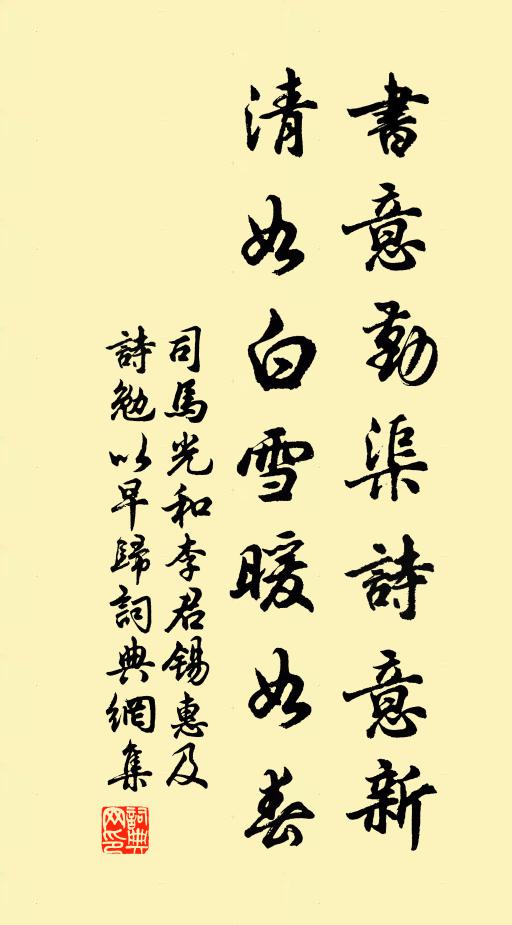 書意勤渠詩意新
清如白雪暖如春
司馬光和李君錫惠及
詩勉以早歸詞典網集
詞典網印